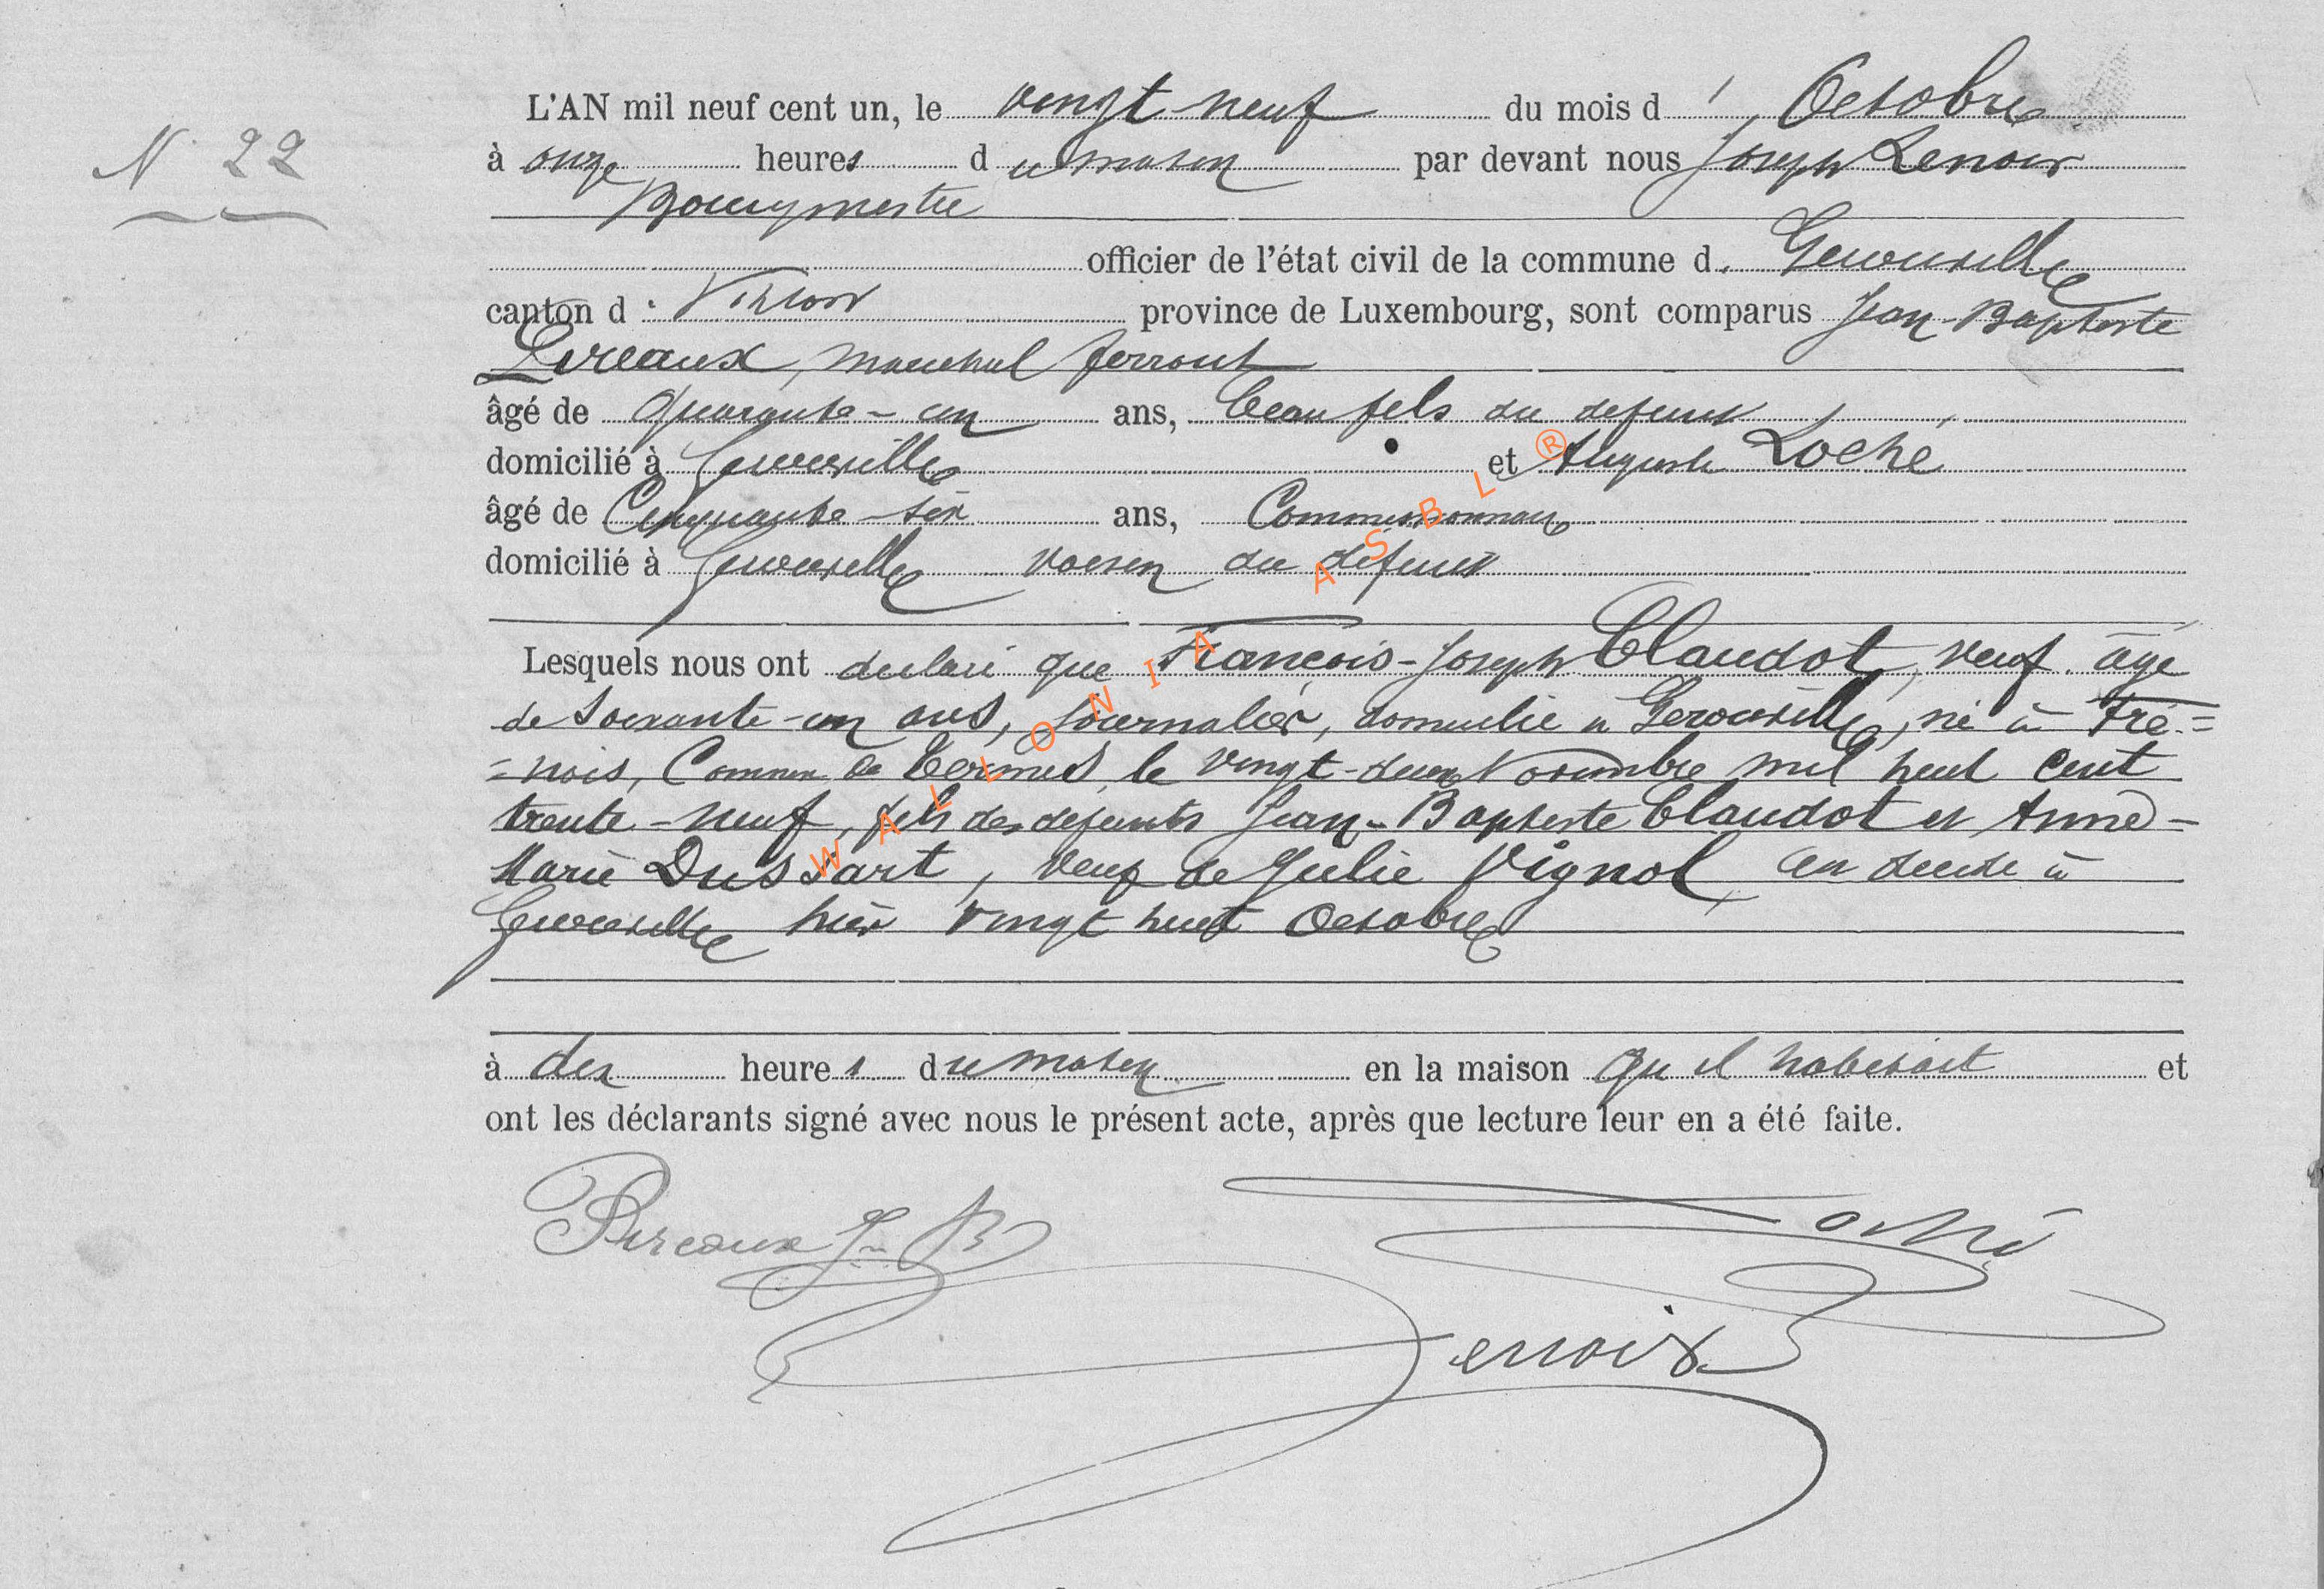 N. 22
L'AN mil neuf cent un, le vingt-neuf du mois d' Octobre
à onze heures du matin par devant nous Joseph Lenoir
Bourgmestre
officier de l'état civil de la commune d. Gérouville
canton d. Virton province de Luxembourg, sont comparus Jean-Baptiste
maréchal ferrant
âgé de quarante-un ans, beau fils du défunt
domicilié à Gérouville et Auguste Loché
âgé de Cinquante-six ans, Commissionnaire
domicilié à Gérouville voisin du défunt
Lesquels nous ont déclaré que François-Joseph Claudot, veuf âgé
de soixante-un ans, journalier, domicilié à Gérouville, né à Fré=
=nois, Commune de Termes, le vingt-deux Novembre mil huit cent
trente-neuf, fils des défunts Jean-Baptiste Claudot et Anne-
Marie Dussart, veuf de Julie Vignol, est décédé à
Gérouville hier vingt huit Octobre
à dix heures du matin en la maison qu'il habitait et
ont les déclarants signé avec nous le présent acte, après que lecture leur en a été faite.
Jn B
Loché
Lenoir
WALLONIA ASBL ®